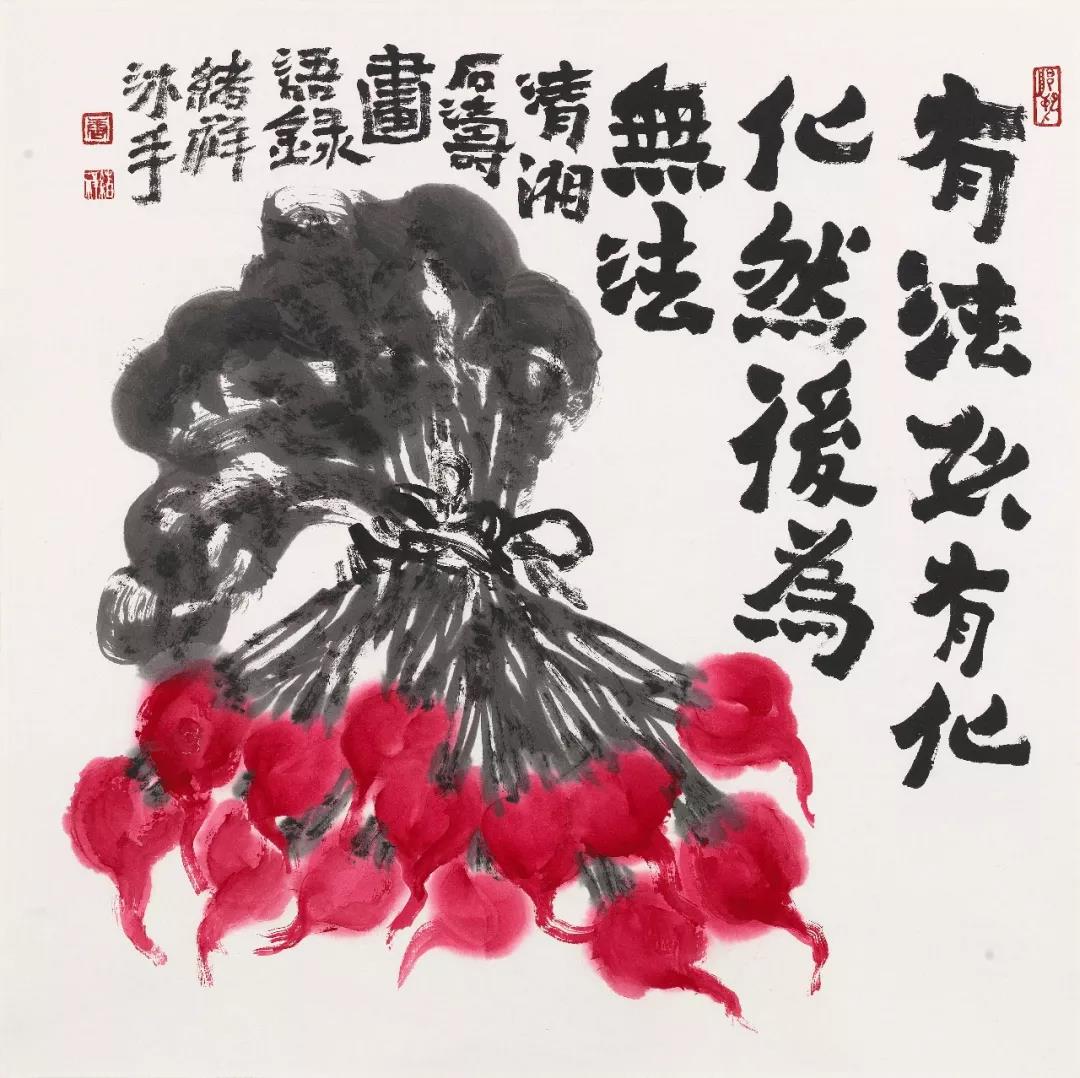 有法必有化
化然後為
無法
清湘
石濤
畫
語録
緒祥
沐手
唐